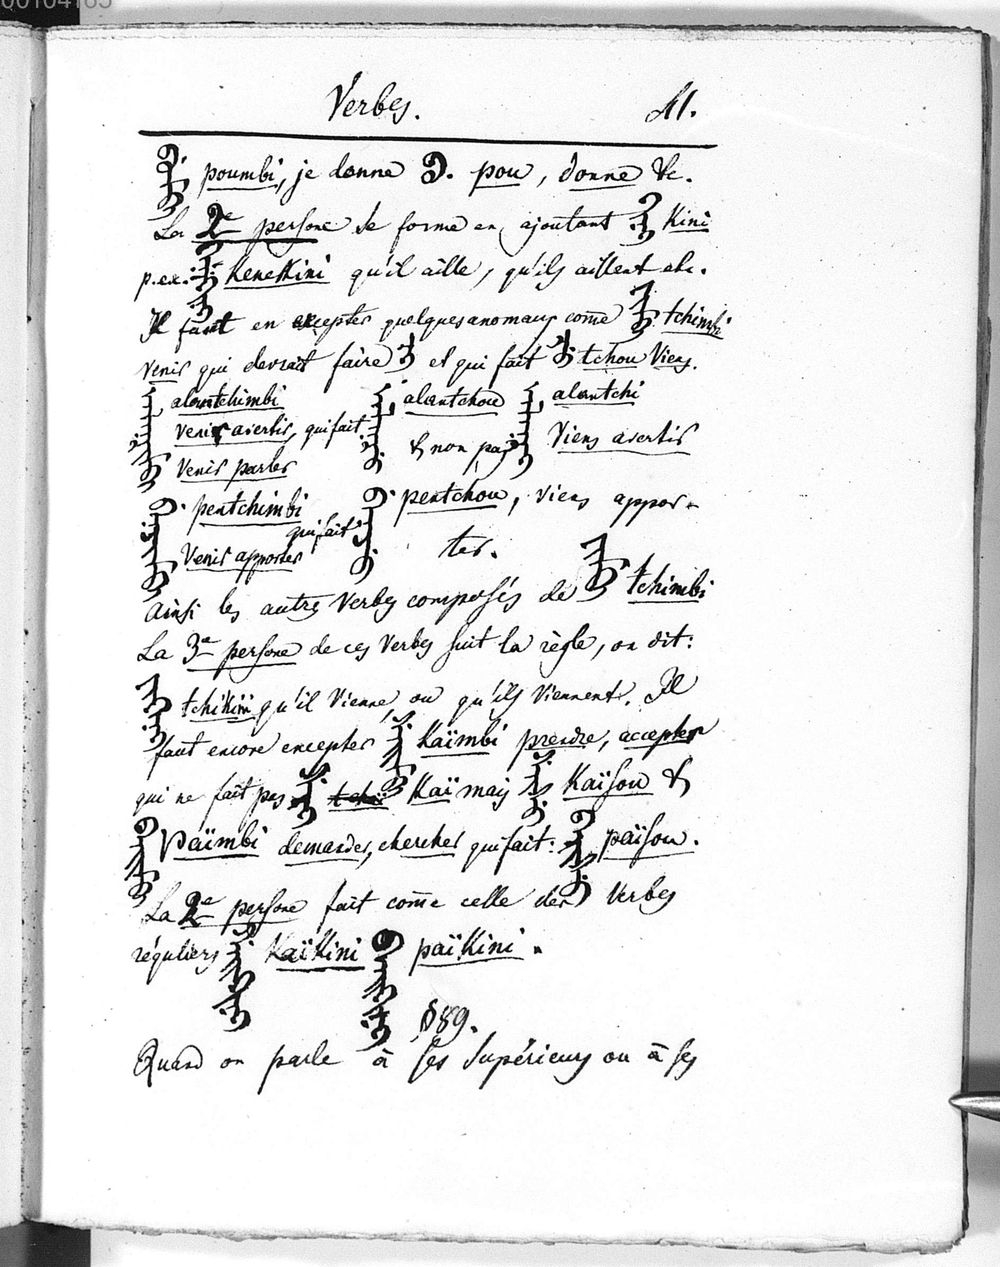 Verbes. 41.
ᠪᡠᠮᠪᡳ poumbi, je donne ᠪᡠ. pou, donne &c.
La 2e persone se forme en ajoutant ᡴᡳᠨᡳ Kini
p. ex: ᡤᡝᠨᡝᡴᡳᠨᡳ KeneKini qu'il aille, qu'ils aillent etc.
Il faut en excepter quelques anomaux com̄e ᠵᡳᠮᠪᡳ tchimbi
venir qui devrait faire ᠵᡳ et qui fait ᠵᡳᠣ tchou Viens.
alantchimbi alantchou alantchi
venir avertir, qui fait & non pas Viens avertir
Venir parler
pentchimbi pentchou, viens appor-
qui fait
Venir apporter ter.
Ainsi les autres Verbes composés de ᠵᡳᠮᠪᡳ tchimbi
La 3e persone de ces Verbes suit la règle, on dit:
ᠵᡳᡴᡳᠨᡳ tchiKini qu'il Vienne, ou qu'ils Viennent. Il
faut encore excepter ᡤᠠᡳᠮᠪᡳ Kaïmbi prendre, accepter
qui ne fait pas ᡤᠠᡳ Kaï mais ᡤᠠᡳᠰᡠ Kaïsou &
ᠪᠠᡳᠮᠪᡳ Païmbi demander, chercher qui fait: ᠪᠠᡳᠰᡠ païsou.
La 2e persone fait com̄e celle des Verbes
réguliers ᡤᠠᡳᡴᡳᠨᡳ KaïKini ᠪᠠᡳᡴᡳᠨᡳ païKini.
§89.
Quand on parle à ses Supérieurs ou à ses